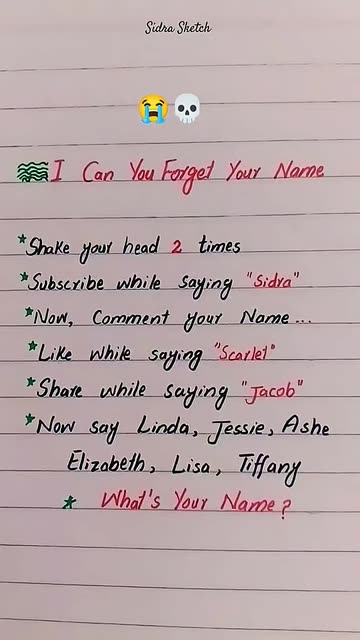 Sidra Sketch
😭💀
I Can You Forget Your Name
*Shake your head 2 times
*Subscribe while saying "Sidra"
*Now, Comment your Name...
*Like while saying "Scarlet"
*Share while saying "Jacob"
*Now say Linda, Jessie, Ashe
Elizabeth, Lisa, Tiffany
* What's Your Name?